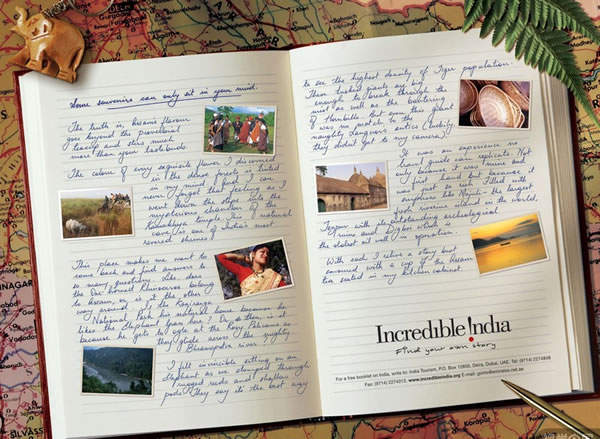 Some souvenirs can only sit in your mind.
The truth is, Assam's flavour
goes beyond the proverbial
teacup and stirs much
more than your tastebuds.
The colour of every exquisite flower I discovered
in the dense forests is listed
in my mind. And I can
never forget that feeling as I
went down the steps into the
mysterious chambers of
Kamakhya temple. This natural
cave is one of India's most
revered shrines!
This place makes me want to
come back and find answers to
so many questions. Does the
One-horned Rhinoceros belong
to Assam, or is it the other
way around? Is the Kaziranga
National Park his natural home because he
likes the Elephant Grass here? Or then, is it
because he gets to ogle at the Rosy Pelicans as
they glide across the mighty
Brahmaputra river?
I felt invincible sitting on an
Elephant as we stomped through
rugged reeds and shallow
pools. They say it's the best way
to see the highest density of Tiger population.
These tusked giants are big
enough to break through the
mist as well as the chattering
of Hornbills. But even this giant
was no match to the
naughty Langur's antics (luckily
they didn't get to my camera).
It was an experience no
travel guide can replicate. Not
only because it was mine and
first hand but because it
was just so rich. Filled with
surprises like Majuli, the largest
fresh riverine island in the world,
Tezpur with its outstanding archaeological
ruins and Digboi with
the oldest oil well in operation.
With each I relive a story best
savoured with a cup of the Assam
tea seated in my kitchen cabinet.
Incredible !ndia
Find your own story
For a free booklet on India, write to: India Tourism, P.O. Box 12856, Deira, Dubai, UAE. Tel: (9714) 2274848
Fax: (9714) 2274013. www.incredibleindia.org E-mail: goirto@emirates.net.ae
SILVASS